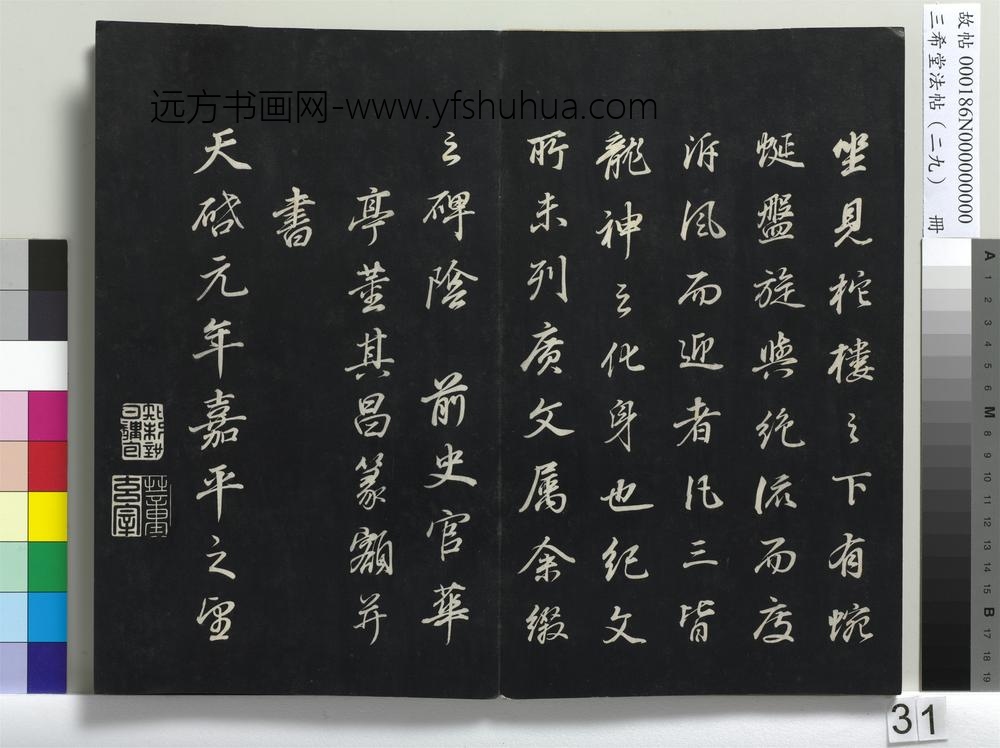 坐見柁樓之下有蜿
蜒盤旋與絶流而度
泝風而迎者凡三皆
龍神之化身也紀文
所未列廣文屬余綴
之碑陰 前史官華
亭董其昌篆額并
書
天啓元年嘉平之望
远方书画网-www.yfshuhua.com
故帖 000186N000000000
三希堂法帖（二九） 冊
A 1 2 3 4 5 6 M 8 9 10 11 12 13 14 15 B 17 18 19
31